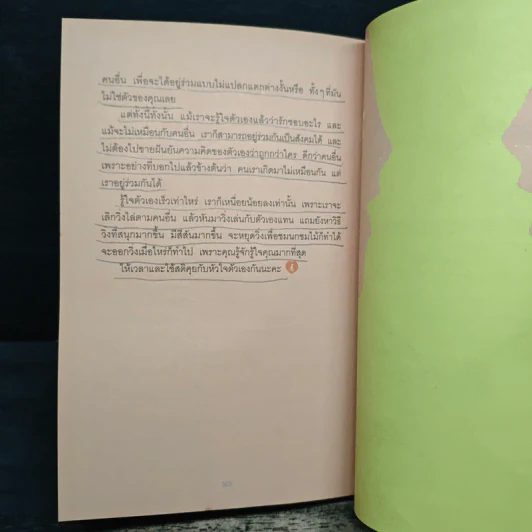 คนอื่น เพื่อจะได้อยู่ร่วมแบบไม่แปลกแตกต่างงั้นหรือ ทั้งๆ ที่มัน
ไม่ใช่ตัวของคุณเลย
แต่ทั้งนี้ทั้งนั้น แม้เราจะรู้ใจตัวเองแล้วว่ารักชอบอะไร และ
แม้จะไม่เหมือนกับคนอื่น เราก็สามารถอยู่ร่วมกันเป็นสังคมได้ และ
ไม่ต้องไปขายฝันยันความคิดของตัวเองว่าถูกกว่าใคร ดีกว่าคนอื่น
เพราะอย่างที่บอกไปแล้วข้างต้นว่า คนเราเกิดมาไม่เหมือนกัน แต่
เราอยู่ร่วมกันได้
รู้ใจตัวเองเร็วเท่าไหร่ เราก็เหนื่อยน้อยลงเท่านั้น เพราะเราจะ
เลิกวิ่งไล่ตามคนอื่น แล้วหันมาวิ่งเล่นกับตัวเองแทน แถมยังหาวิธี
วิ่งที่สนุกมากขึ้น มีสีสันมากขึ้น จะหยุดวิ่งเพื่อชมนกชมไม้ก็ทำได้
จะออกวิ่งเมื่อไหร่ก็ทำไป เพราะคุณรู้จักรู้ใจคุณมากที่สุด
ให้เวลาและใช้สติคุยกับหัวใจตัวเองกันนะคะ